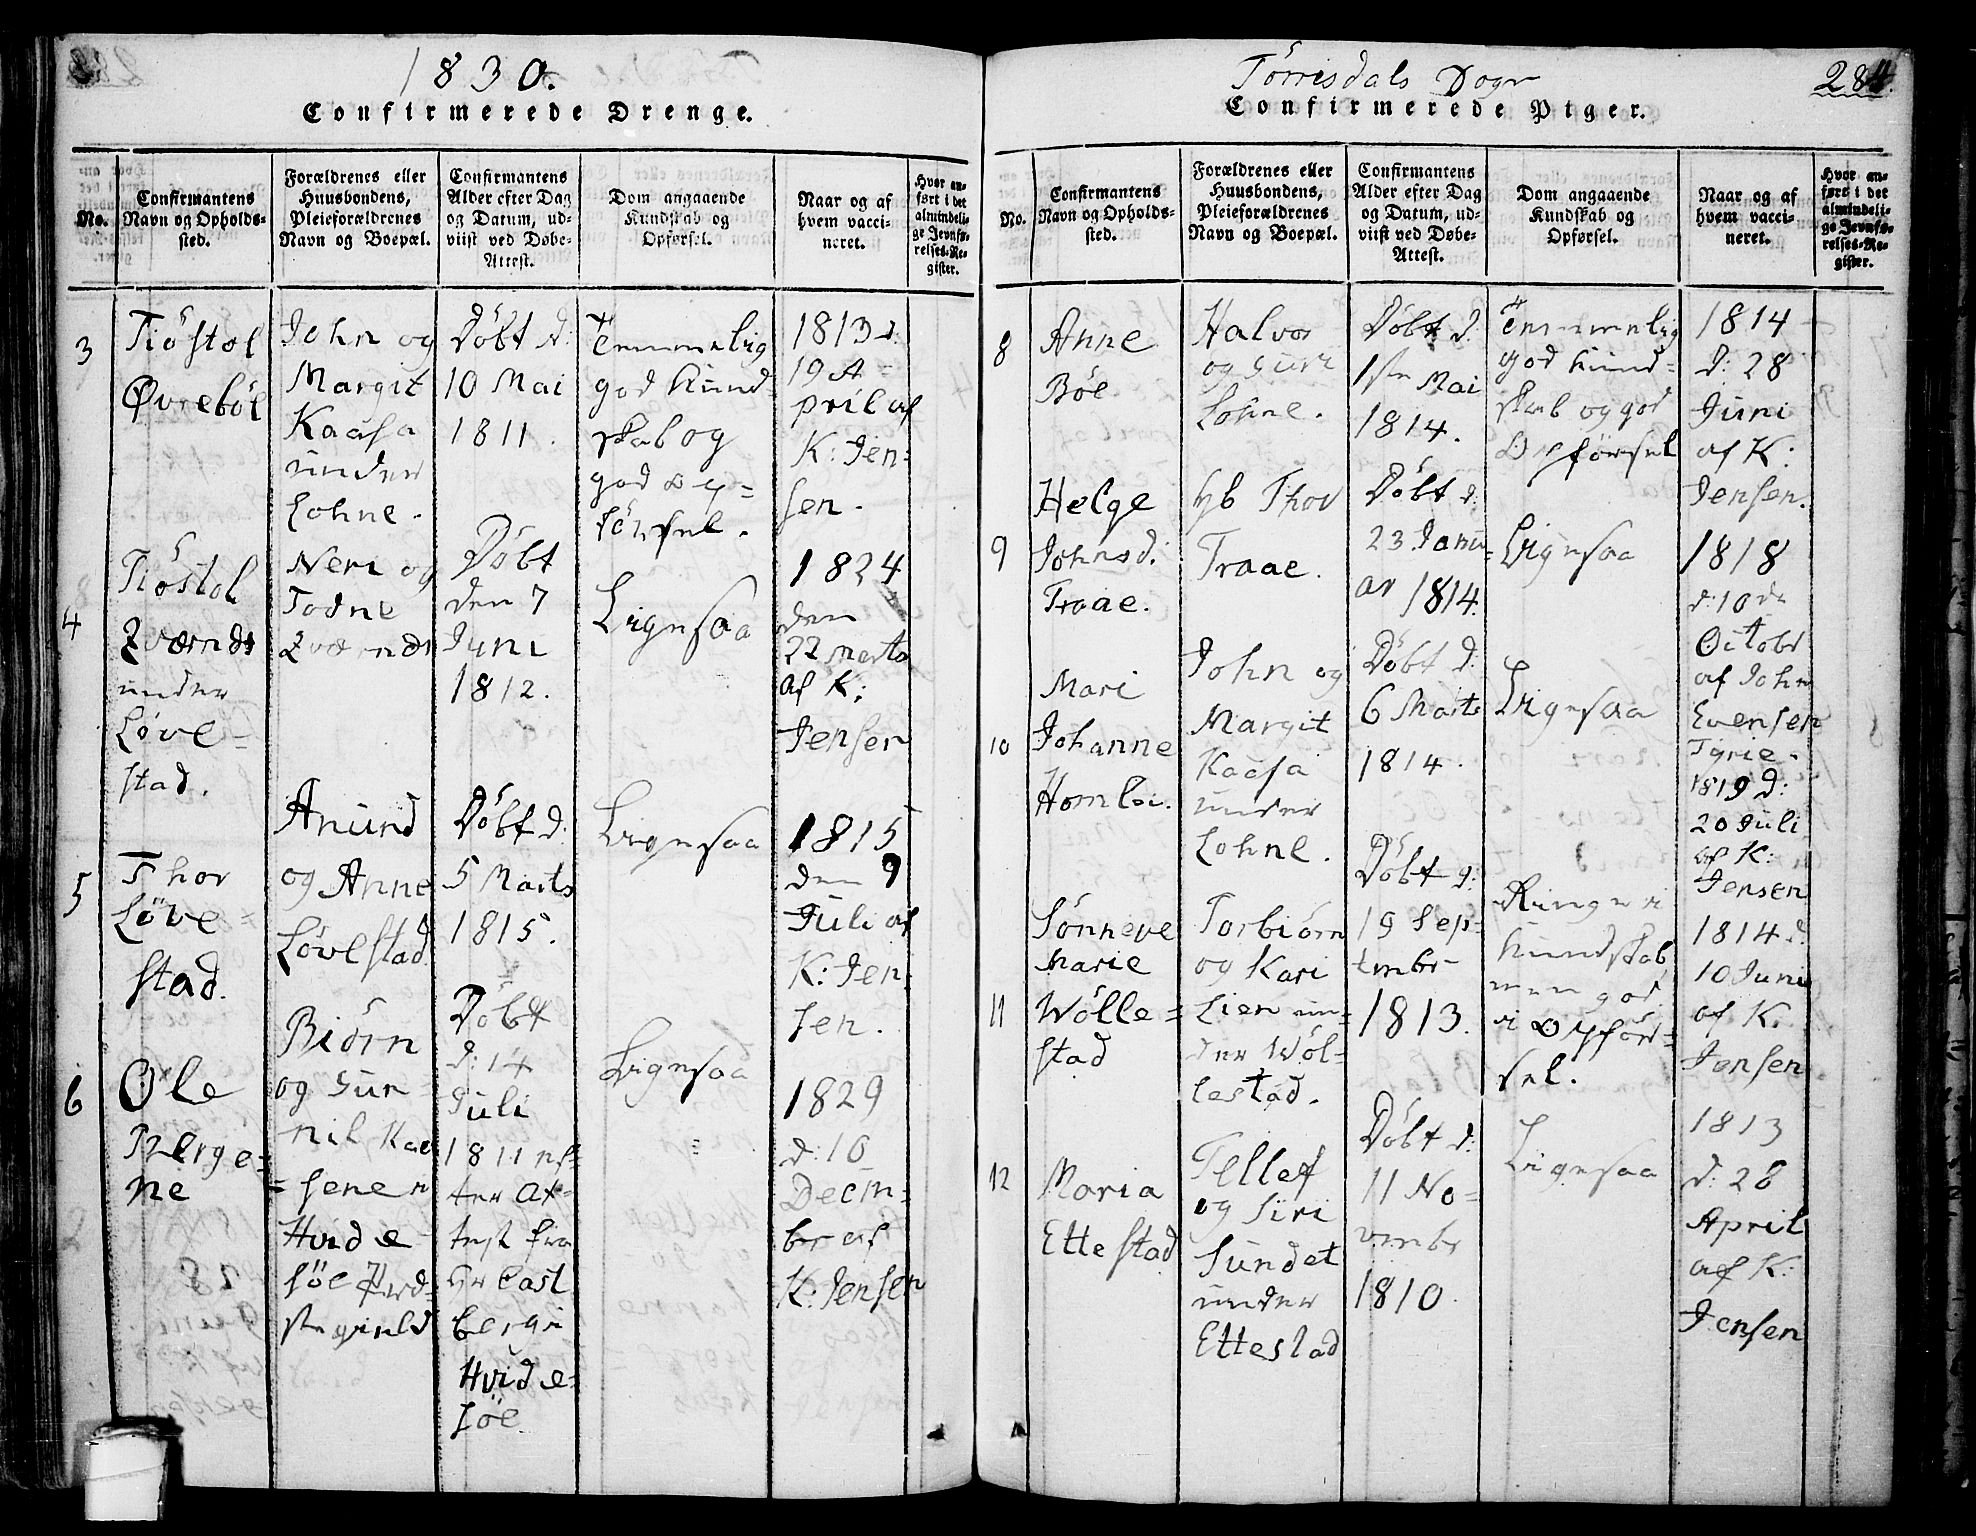 1830.
Confirmerede Drenge.
No.
Confirmantens
Navn og Opholds-
sted.
Forældrenes eller
Huusbondens,
Pleieforældrenes
Navn og Boepæl.
Confirmantens
Alder efter Dag
og Datum, ud-
viist ved Døbe-
Attest.
Dom angaaende
Kundskab og
Opførsel.
Naar og af
hvem vacci-
neret.
Hvor an-
ført i det
almindeli-
ge Jevnfø-
relses-Re-
gister.
3
Tiöstol
Øvreböl
John og
Margit
Kaasa
under
Lohne.
Döbt d:
10 Mai
1811.
Temmelig
god Kund-
skab og
god Op-
försel.
1813 d:
19 A-
pril af
K: Jen-
sen.
4
Tiöstol
Qværndr
under
Löve-
stad.
Neri og
Todne
Qværndr
Döbt
den 7
Juni
1812.
Ligesaa
1824
den
22 Marts
af K:
Jensen
5
Thor
Löve-
stad.
Anund
og Anne
Lövestad
Döbt d:
5 Marts
1815.
Ligesaa
1815
den 9
Juli af
K: Jen-
sen.
6
Ole
Berge-
nie
Biörn
og Gun-
nil Kaa-
senen
Hvide-
söe Præ-
stegield
Döbt
d: 14
Juli
1811 ef-
ter At-
test fra
Hr Cast
berg i
Hvide-
söe
Ligesaa
1829
d: 10
Decem-
ber af
K: Jensen
Törrisdals Sogn
284.
Confirmerede Piger.
No.
Confirmantens
Navn og Opholds-
sted.
Forældrenes eller
Huusbondens,
Pleieforældrenes
Navn og Boepæl.
Confirmantens
Alder efter Dag
og Datum, ud-
viist ved Døbe-
Attest.
Dom angaaende
Kundskab og
Opførsel.
Naar og af
hvem vacci-
neret.
Hvor an-
ført i det
almindeli-
ge Jevnfø-
relses-Re-
gister.
8
Anne
Böe
Halvor
og Guri
Lohne.
Döbt d:
1ste Mai
1814.
Temmelig
god Kund-
skab og god
Opförsel
1814
d: 28
Juni
af K:
Jensen.
9
Helge
Johnsd:
Traae.
Thor
Traae.
Döbt d:
23 Janu-
ar 1814.
Ligesaa
1818
d: 10de
Octobr
af John
Evensen
Tyrie.
10
Mari
Johanne
Homlei.
John og
Margit
Kaasa
under
Lohne.
Döbt d:
6 Marts
1814.
Ligesaa
1819 d:
20 Juli
af K:
Jensen
11
Sönneve
Marie
Wölle-
stad
Torbiörn
og Kari
Lien un-
der Wöl-
lestad.
Döbt d:
19 Sep-
tembr
1813.
Ringe i
Kundskab
men god
i Opför-
sel.
1814 d.
10 Juni
af K.
Jensen
12
Maria
Ettestad
Tellef
og Siri
Sundet
under
Ettestad
Döbt d:
11 No-
vembr
1810.
Ligesaa
1813
d: 28
April
af K:
Jensen